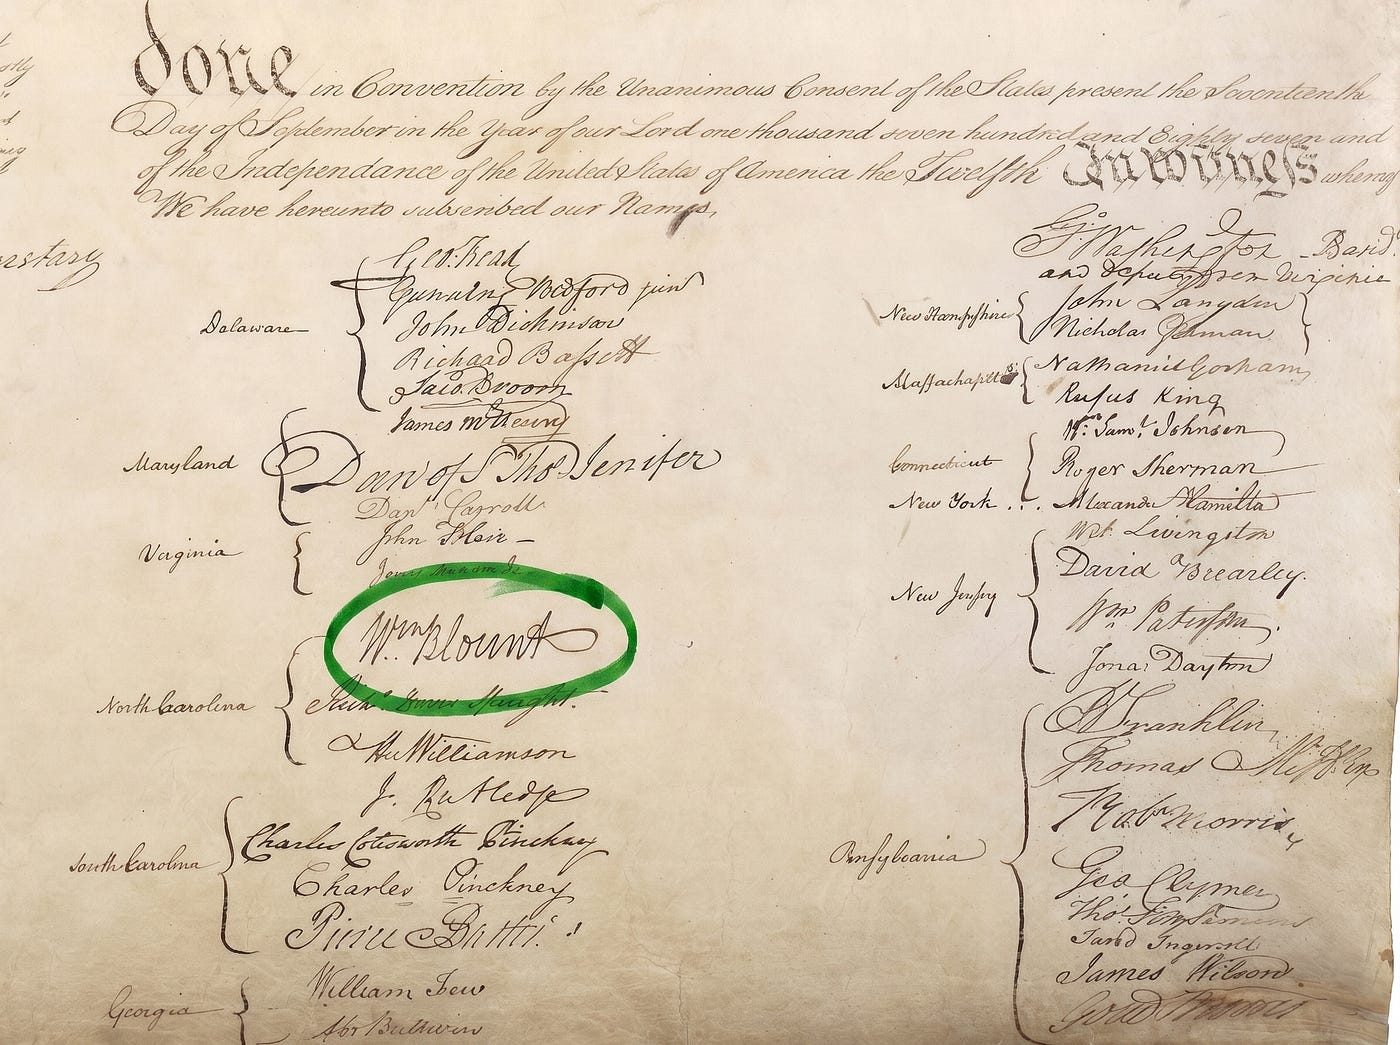 done in Convention by the Unanimous Consent of the States present the Seventeenth
Day of September in the Year of our Lord one thousand seven hundred and Eighty seven and
of the Independance of the United States of America the Twelfth In witness whereof
We have hereunto subscribed our Names,
Delaware
Geo: Read
Gunning Bedford jun
John Dickinson
Richard Bassett
Jaco: Broom
Maryland
James McHenry
Dan of St Thos Jenifer
Danl Carroll
Virginia
John Blair –
James Madison Jr
North Carolina
Wm Blount
Richd Dobbs Spaight.
Hu Williamson
South Carolina
J. Rutledge
Charles Cotesworth Pinckney
Charles Pinckney
Pierce Butler.
Georgia
William Few
Abr Baldwin
Go Washington Presidt
and deputy from Virginia
New Hampshire
John Langdon
Nicholas Gilman
Massachusetts
Nathaniel Gorham
Rufus King
Connecticut
Wm: Saml Johnson
Roger Sherman
New York ...
Alexander Hamilton
New Jersey
Wil: Livingston
David Brearley.
Wm Paterson.
Jona: Dayton
Pensylvania
B Franklin
Thomas Mifflin
Robt Morris
Geo. Clymer
Thos FitzSimons
Jared Ingersoll
James Wilson.
Gouv Morris